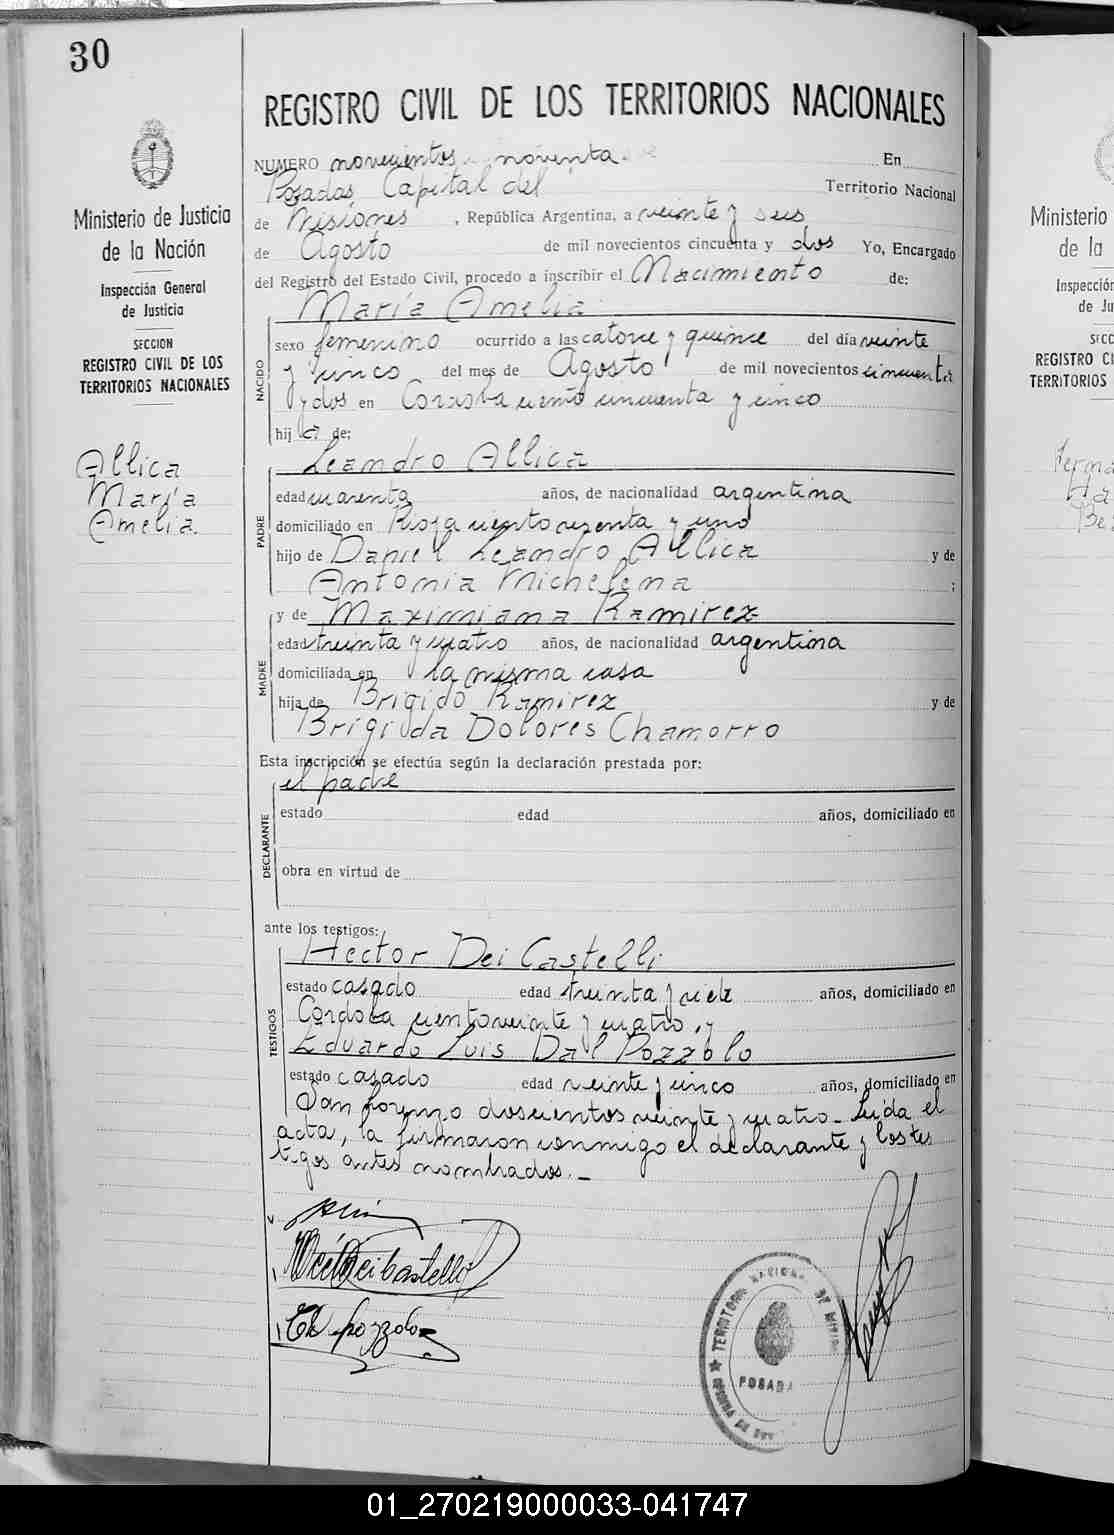 30
REGISTRO CIVIL DE LOS TERRITORIOS NACIONALES
Ministerio de Justicia
de la Nación
Inspección General
de Justicia
SECCION
REGISTRO CIVIL DE LOS
TERRITORIOS NACIONALES
Allica
María
Amelia.
NUMERO novecientos noventa En
Posadas, Capital del Territorio Nacional
de Misiones, República Argentina, a veinte y seis
de Agosto de mil novecientos cincuenta y dos Yo, Encargado
del Registro del Estado Civil, procedo a inscribir el Nacimiento de:
María Amelia
NACIDO
sexo femenino ocurrido a las catorce y quince del día veinte
y cinco del mes de Agosto de mil novecientos cincuenta
y dos en Cordoba ciento cincuenta y cinco
hij a de:
Leandro Allica
PADRE
edad cuarenta años, de nacionalidad argentina
domiciliado en Rioja ciento y uno
hijo de Daniel Leandro Allica y de
Antonia Michelena ;
y de Maximiana Ramirez
MADRE
edad treinta y cuatro años, de nacionalidad argentina
domiciliada en la misma casa
hija de Brigido Ramirez y de
Brigida Dolores Chamorro
Esta inscripción se efectúa según la declaración prestada por:
el padre
DECLARANTE
estado edad años, domiciliado en
obra en virtud de
ante los testigos:
Hector Dei Castelli
TESTIGOS
estado casado edad treinta y siete años, domiciliado en
Córdoba ciento veinte y cuatro, y
Eduardo Luis Dal Pozzolo
estado casado edad veinte y cinco años, domiciliado en
San Lorenzo doscientos veinte y cuatro- Leída el
acta, la firmaron conmigo el declarante y los tes
tigos antes nombrados.-
Dei Castelli
pozzolo
TERRITORIO NACIONAL DE
POSADAS
Ministerio
de la
Inspección
de Ju
SECC
REGISTRO CI
TERRITORIOS
Ferna
01_270219000033-041747